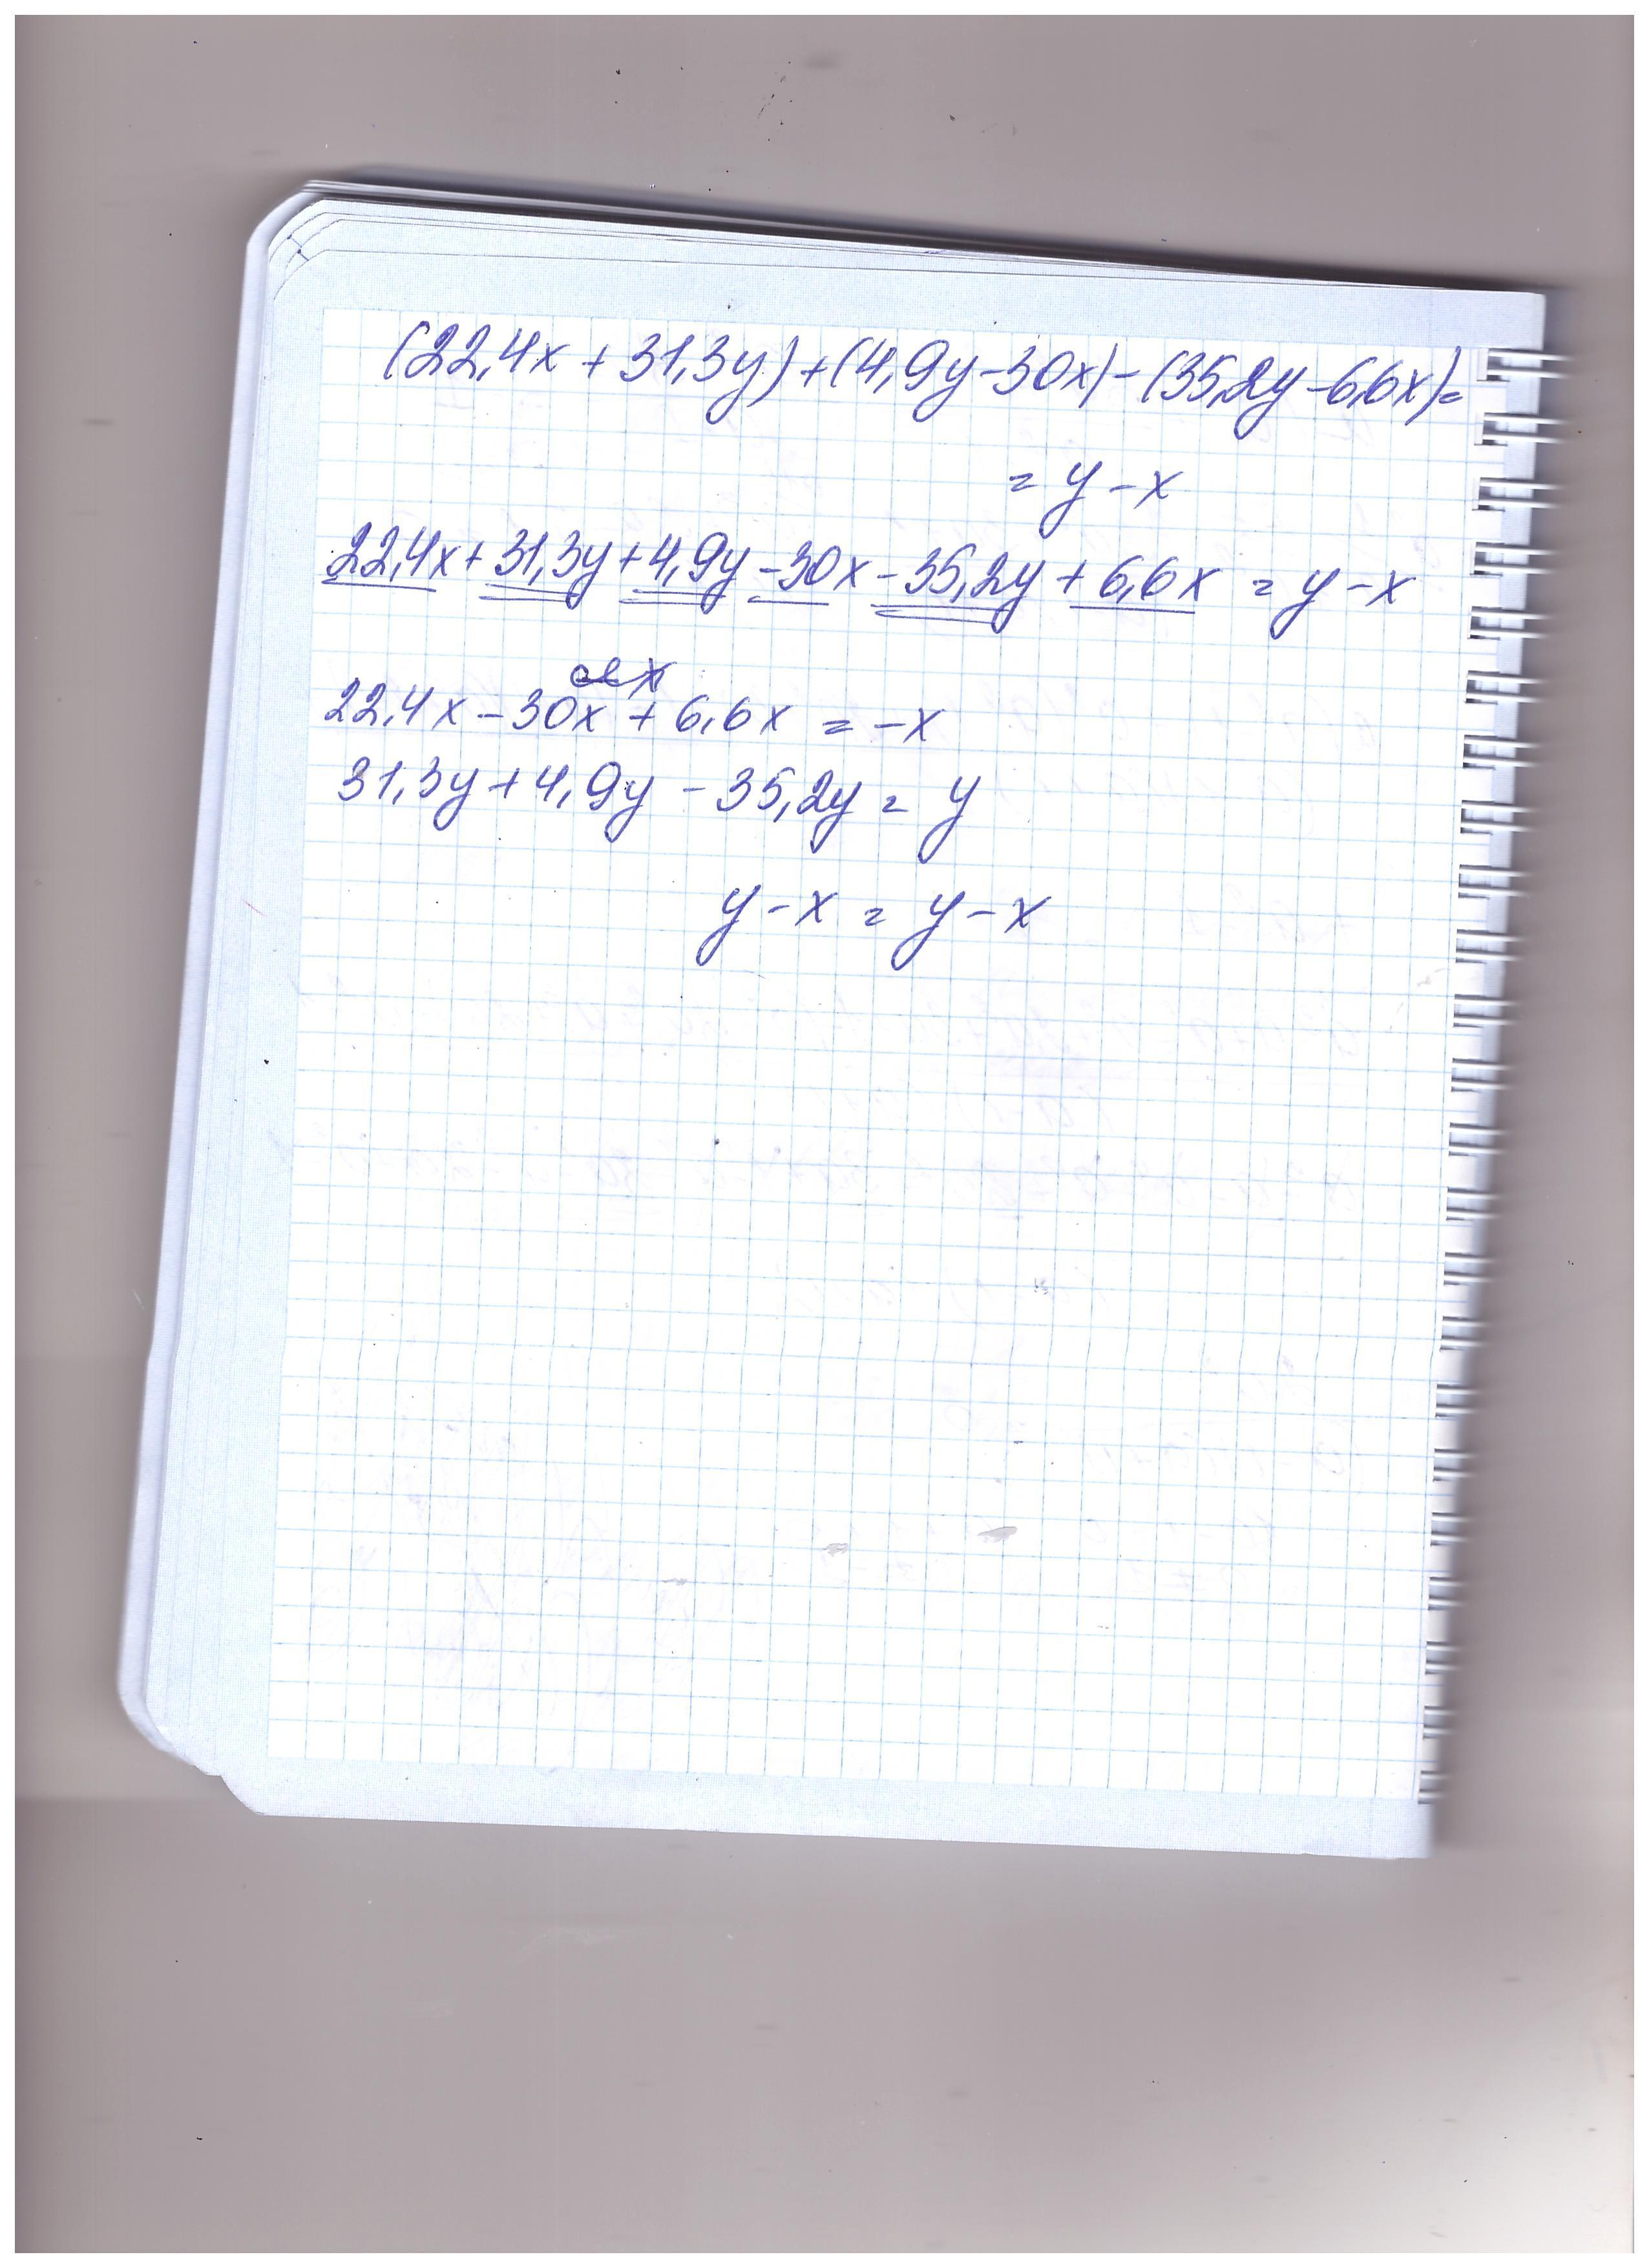 (22,4x + 31,3y) + (4,9y - 30x) - (35,2y - 6,6x) =
= y - x
22,4x + 31,3y + 4,9y - 30x - 35,2y + 6,6x = y - x
22,4x - 30x + 6,6x = -x
31,3y + 4,9y - 35,2y = y
y - x = y - x